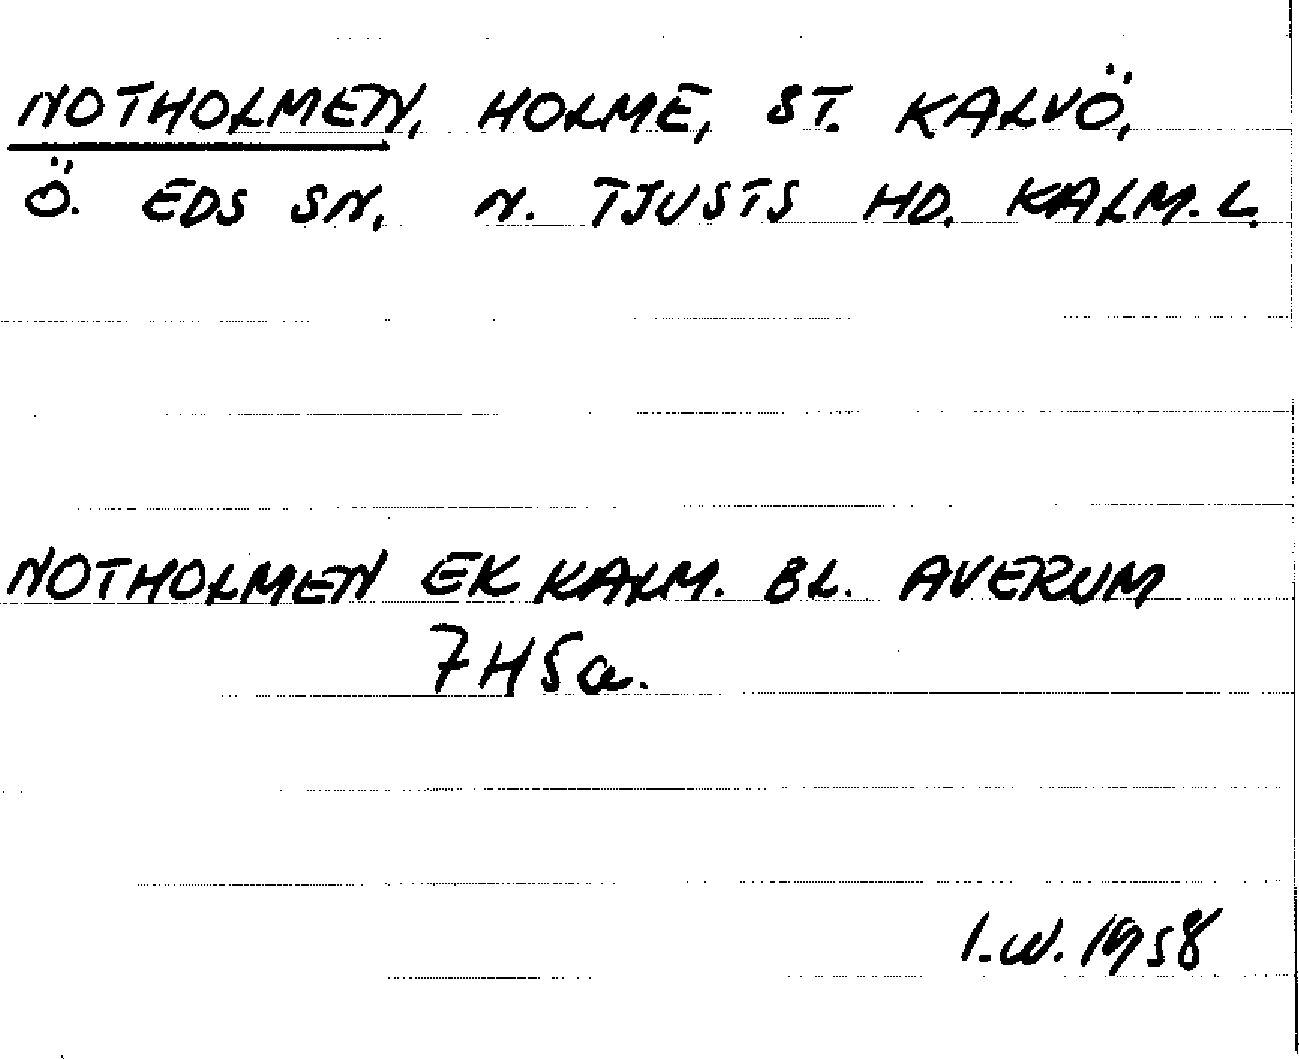 NOTHOLMEN, HOLME, ST. KALVÖ,
Ö. EDS SN. N. TJUSTS HD. KALM. L.
NOTHOLMEN EK KALM. BL. AVERUM
7H5a.
I.W. 1958